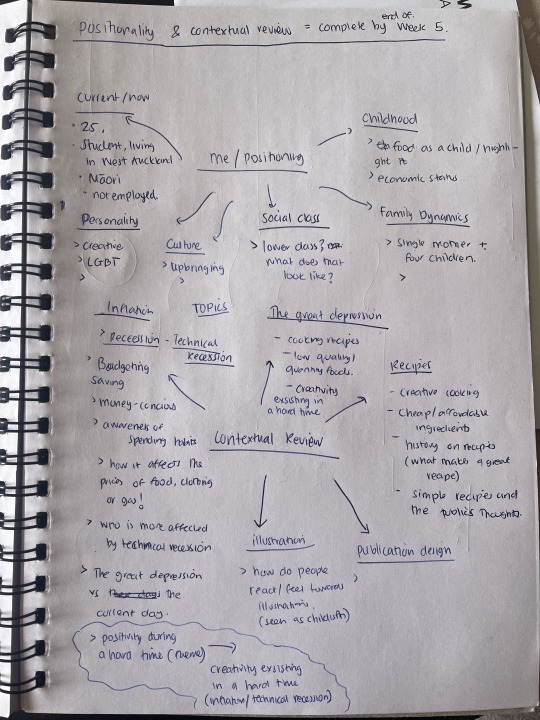 end of.
Positionality & contextual review = complete by Week 5.
Current/now
• 25,
• Student, living
in West Auckland
• Māori
- not employed.
me / positioning
Childhood
> food as a child / highli-
ght it
> economic status
Personality
> Creative
> LGBT
>
Culture
> Upbringing
>
Social class
> lower class?
what does that
look like?
Family Dynamics
> Single mother +
four children.
>
Inflation
> Recession - Technical
recession
> Budgeting
saving
> money-concious
> awareness of
spending habits
> how it affects the
prices of food, clothing
or gas!
> who is more affected
by technical recession
> The great depression
vs the
current day.
TOPICS
The great depression
- cooking recipes
- low quality/
quantity foods.
- Creativity
exsisting in
a hard time
Recipes
- creative cooking
- Cheap/affordable
ingredients
- history on recipes
(what makes a great
recipe)
- simple recipes and
the public's thoughts.
Contextual Review
illustration
> how do people
react/feel towards
illustrations.
(seen as childish)
Publication design
>
> positivity during
a hard time (theme)
Creativity exsisting
in a hard time
(inflation/technical recession)